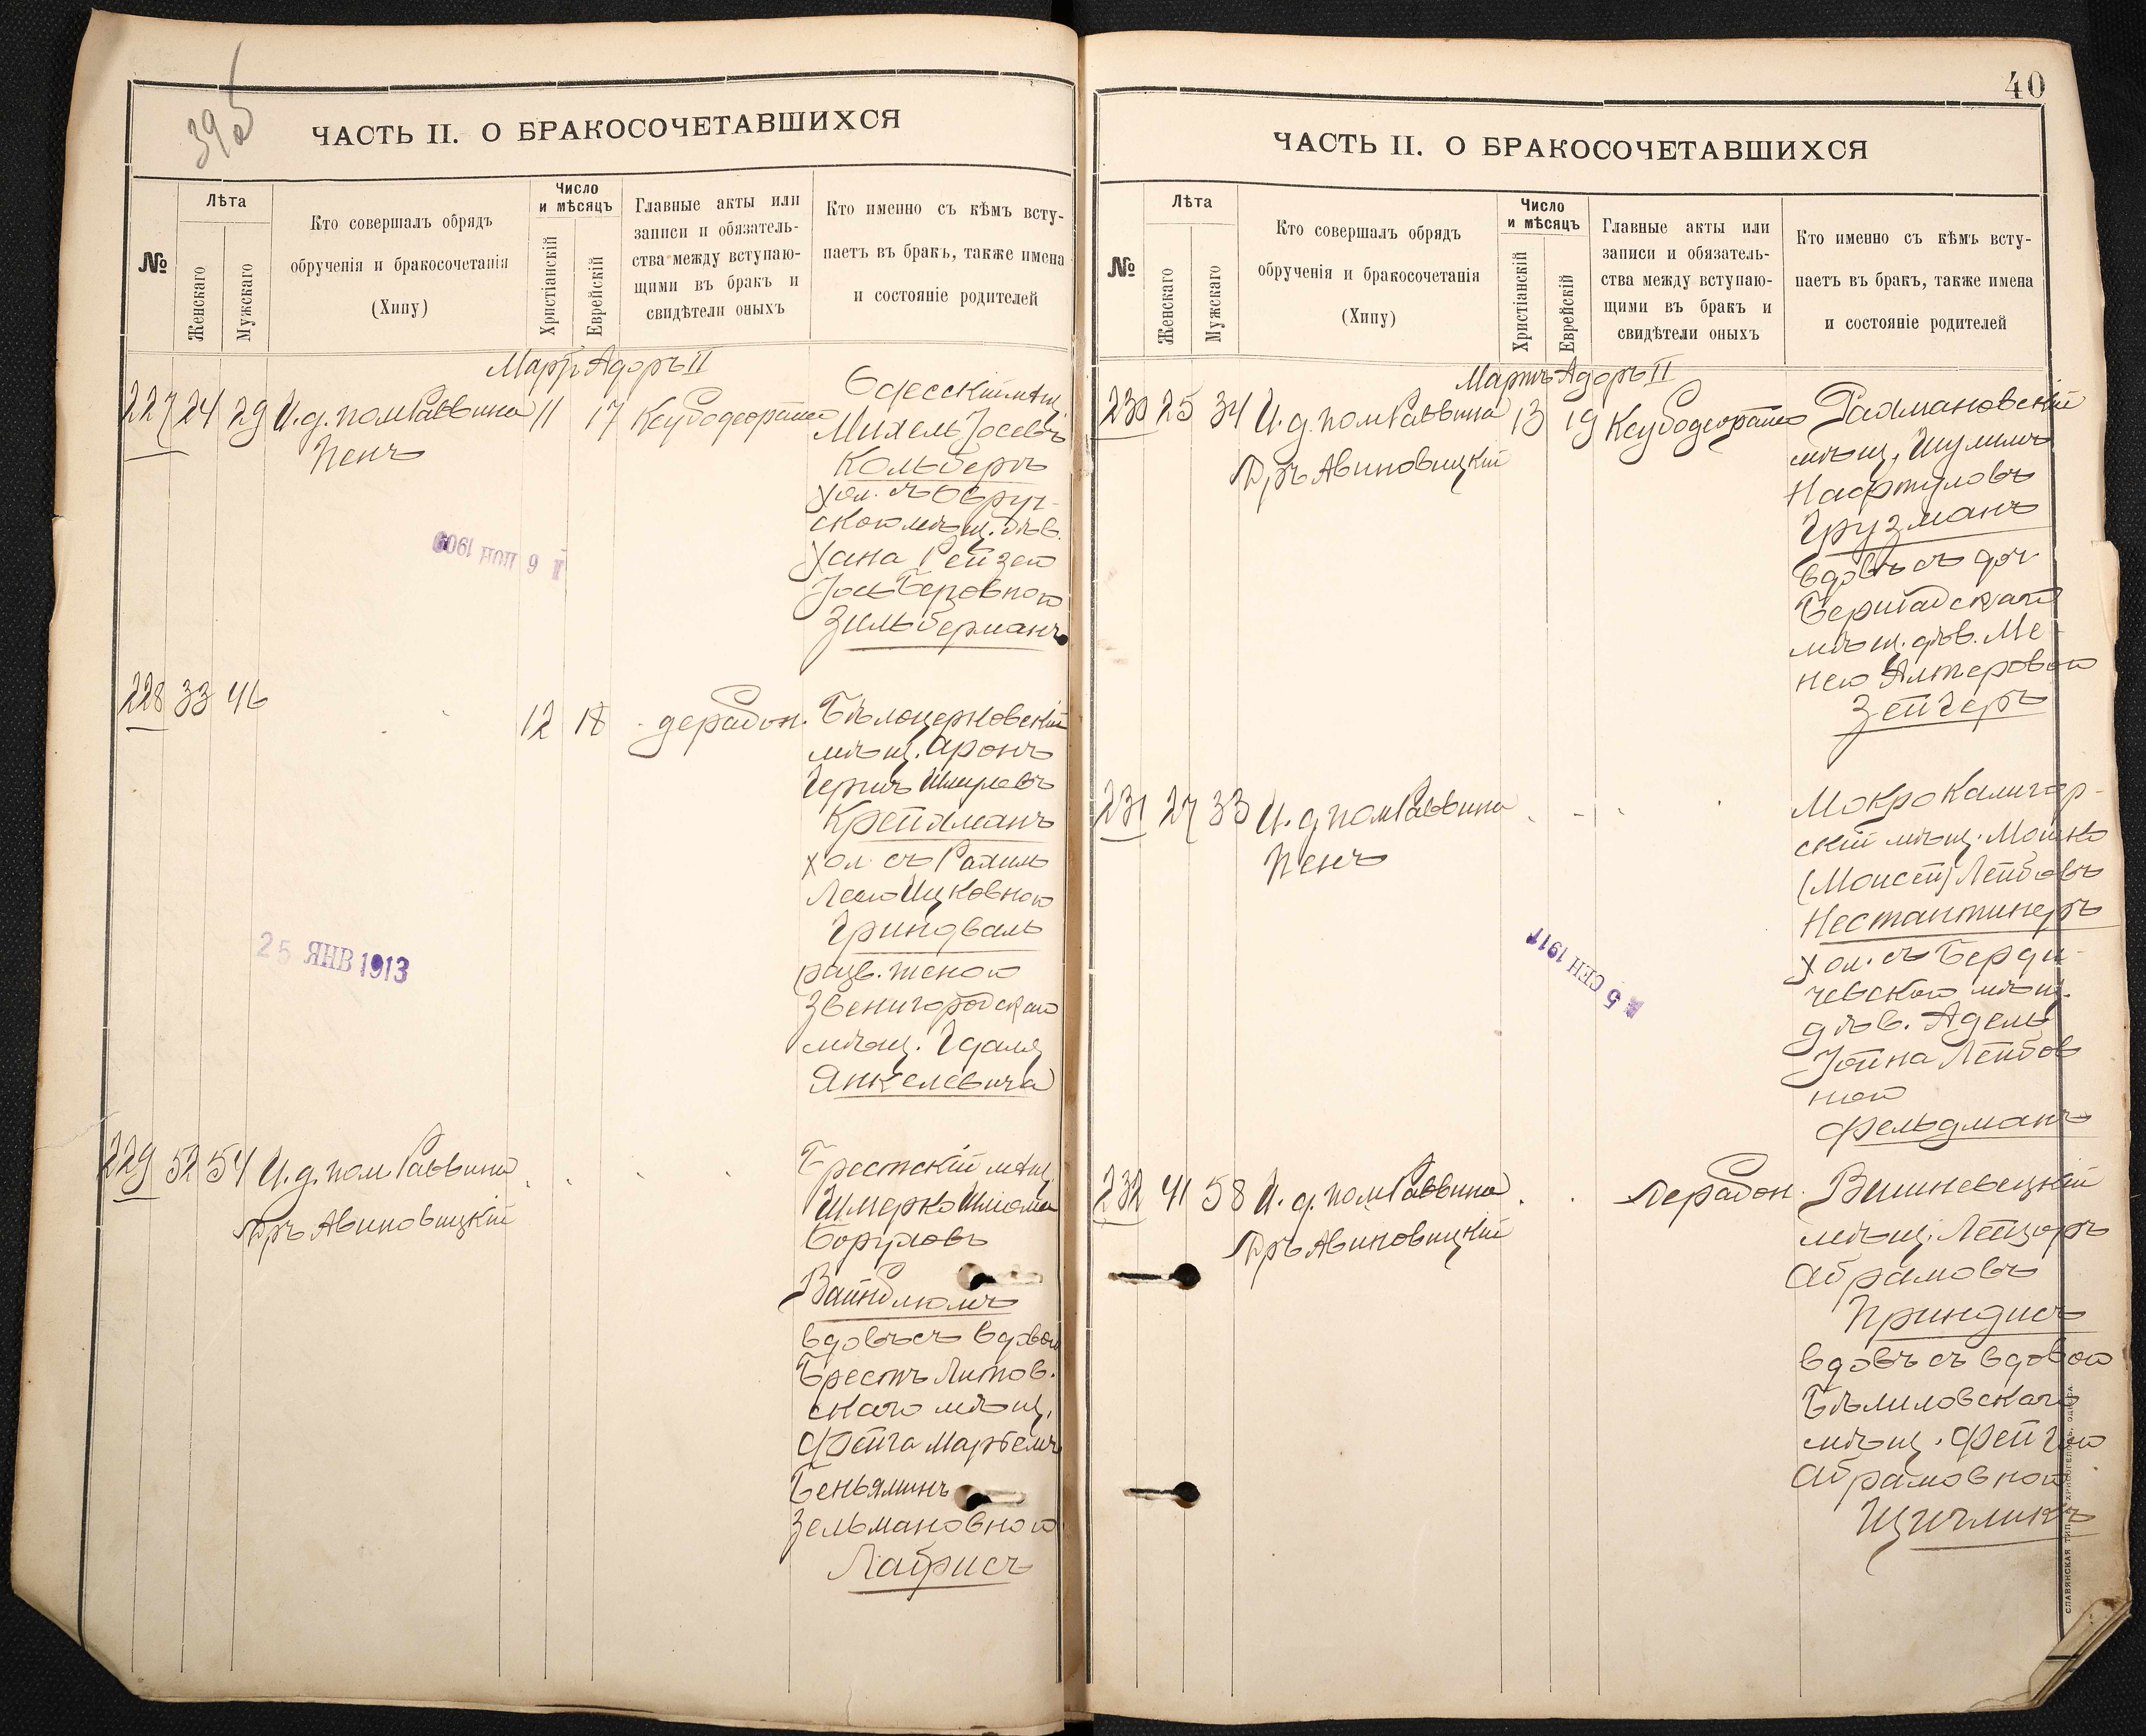 39об
ЧАСТЬ II. О БРАКОСОЧЕТАВШИХСЯ
№
Лѣта
Женскаго
Мужскаго
Кто совершалъ обрядъ
обрученія и бракосочетанія
(Хипу)
Число
и мѣсяцъ
Христіанскій
Еврейскій
Главные акты или
записи и обязатель-
ства между вступаю-
щими въ бракъ и
свидѣтели оныхъ
Кто именно съ кѣмъ всту-
паетъ въ бракъ, также имена
и состояніе родителей
Мартъ Адоръ II
227 24 29 И.д. пом Раввина 11 17 Ксубо деорайсо
Пенъ
Одесскій мѣщ.
Михель Іосевъ
Кольберъ
хол. съ Овруч-
скою мѣщ. дѣв.
Хана Рейзею
Іось Беровною
Зильберманъ
6 ІЮН 1909
228 33 46 12 18 - дерабон.
Бѣлоцерковскій
мѣщ. Аронъ
Гершъ Шмулевъ
Крейзманъ
хол. съ Рахиль
Леею Ицковною
Гриндваль
разв. женою
Звенигородскаго
мѣщ. Гдаля
Янкелевича
25 ЯНВ 1913
229 52 54 И.д. пом Раввина
Д-ръ Авиновицкій
Брестскій мѣщ.
Шмерко Шлома
Боруховъ
Вайнблюмъ
вдовъ съ вдовою
Брестъ Литов.
скаго мѣщ.
Фейга
Беньяминъ
Зельмановною
Лабрисъ
40
ЧАСТЬ II. О БРАКОСОЧЕТАВШИХСЯ
№
Лѣта
Женскаго
Мужскаго
Кто совершалъ обрядъ
обрученія и бракосочетанія
(Хипу)
Число
и мѣсяцъ
Христіанскій
Еврейскій
Главные акты или
записи и обязатель-
ства между вступаю-
щими въ бракъ и
свидѣтели оныхъ
Кто именно съ кѣмъ всту-
паетъ въ бракъ, также имена
и состояніе родителей
Мартъ Адоръ II
230 25 34 И.д. пом Раввина 13 19 Ксубо деорайсо
Д-ръ Авиновицкій
Рахмановскій
мѣщ. Шулимъ
Нафтуловъ
Грузманъ
вдовъ съ доч.
Бершадскаго
мѣщ. дѣв. Ме-
нею Алтеровною
Зейгеръ
231 27 33 И.д. пом Раввина
Пенъ
Мокро Калигор-
скій мѣщ. Мошко
(Моисей) Лейбовъ
Нестантинеръ
хол. съ Берди-
чевскою мѣщ.
дѣв. Адель
Лейбов
ною
Фельдманъ
5 СЕН 1917
232 41 58 И.д. пом Раввина дерабон.
Д-ръ Авиновицкій
Вишневецкій
мѣщ. Лейзоръ
Абрамовъ
Приндисъ
вдовъ съ вдовою
Бѣлиловскаго
мѣщ. Фейгою
Абрамовною
Щигликъ